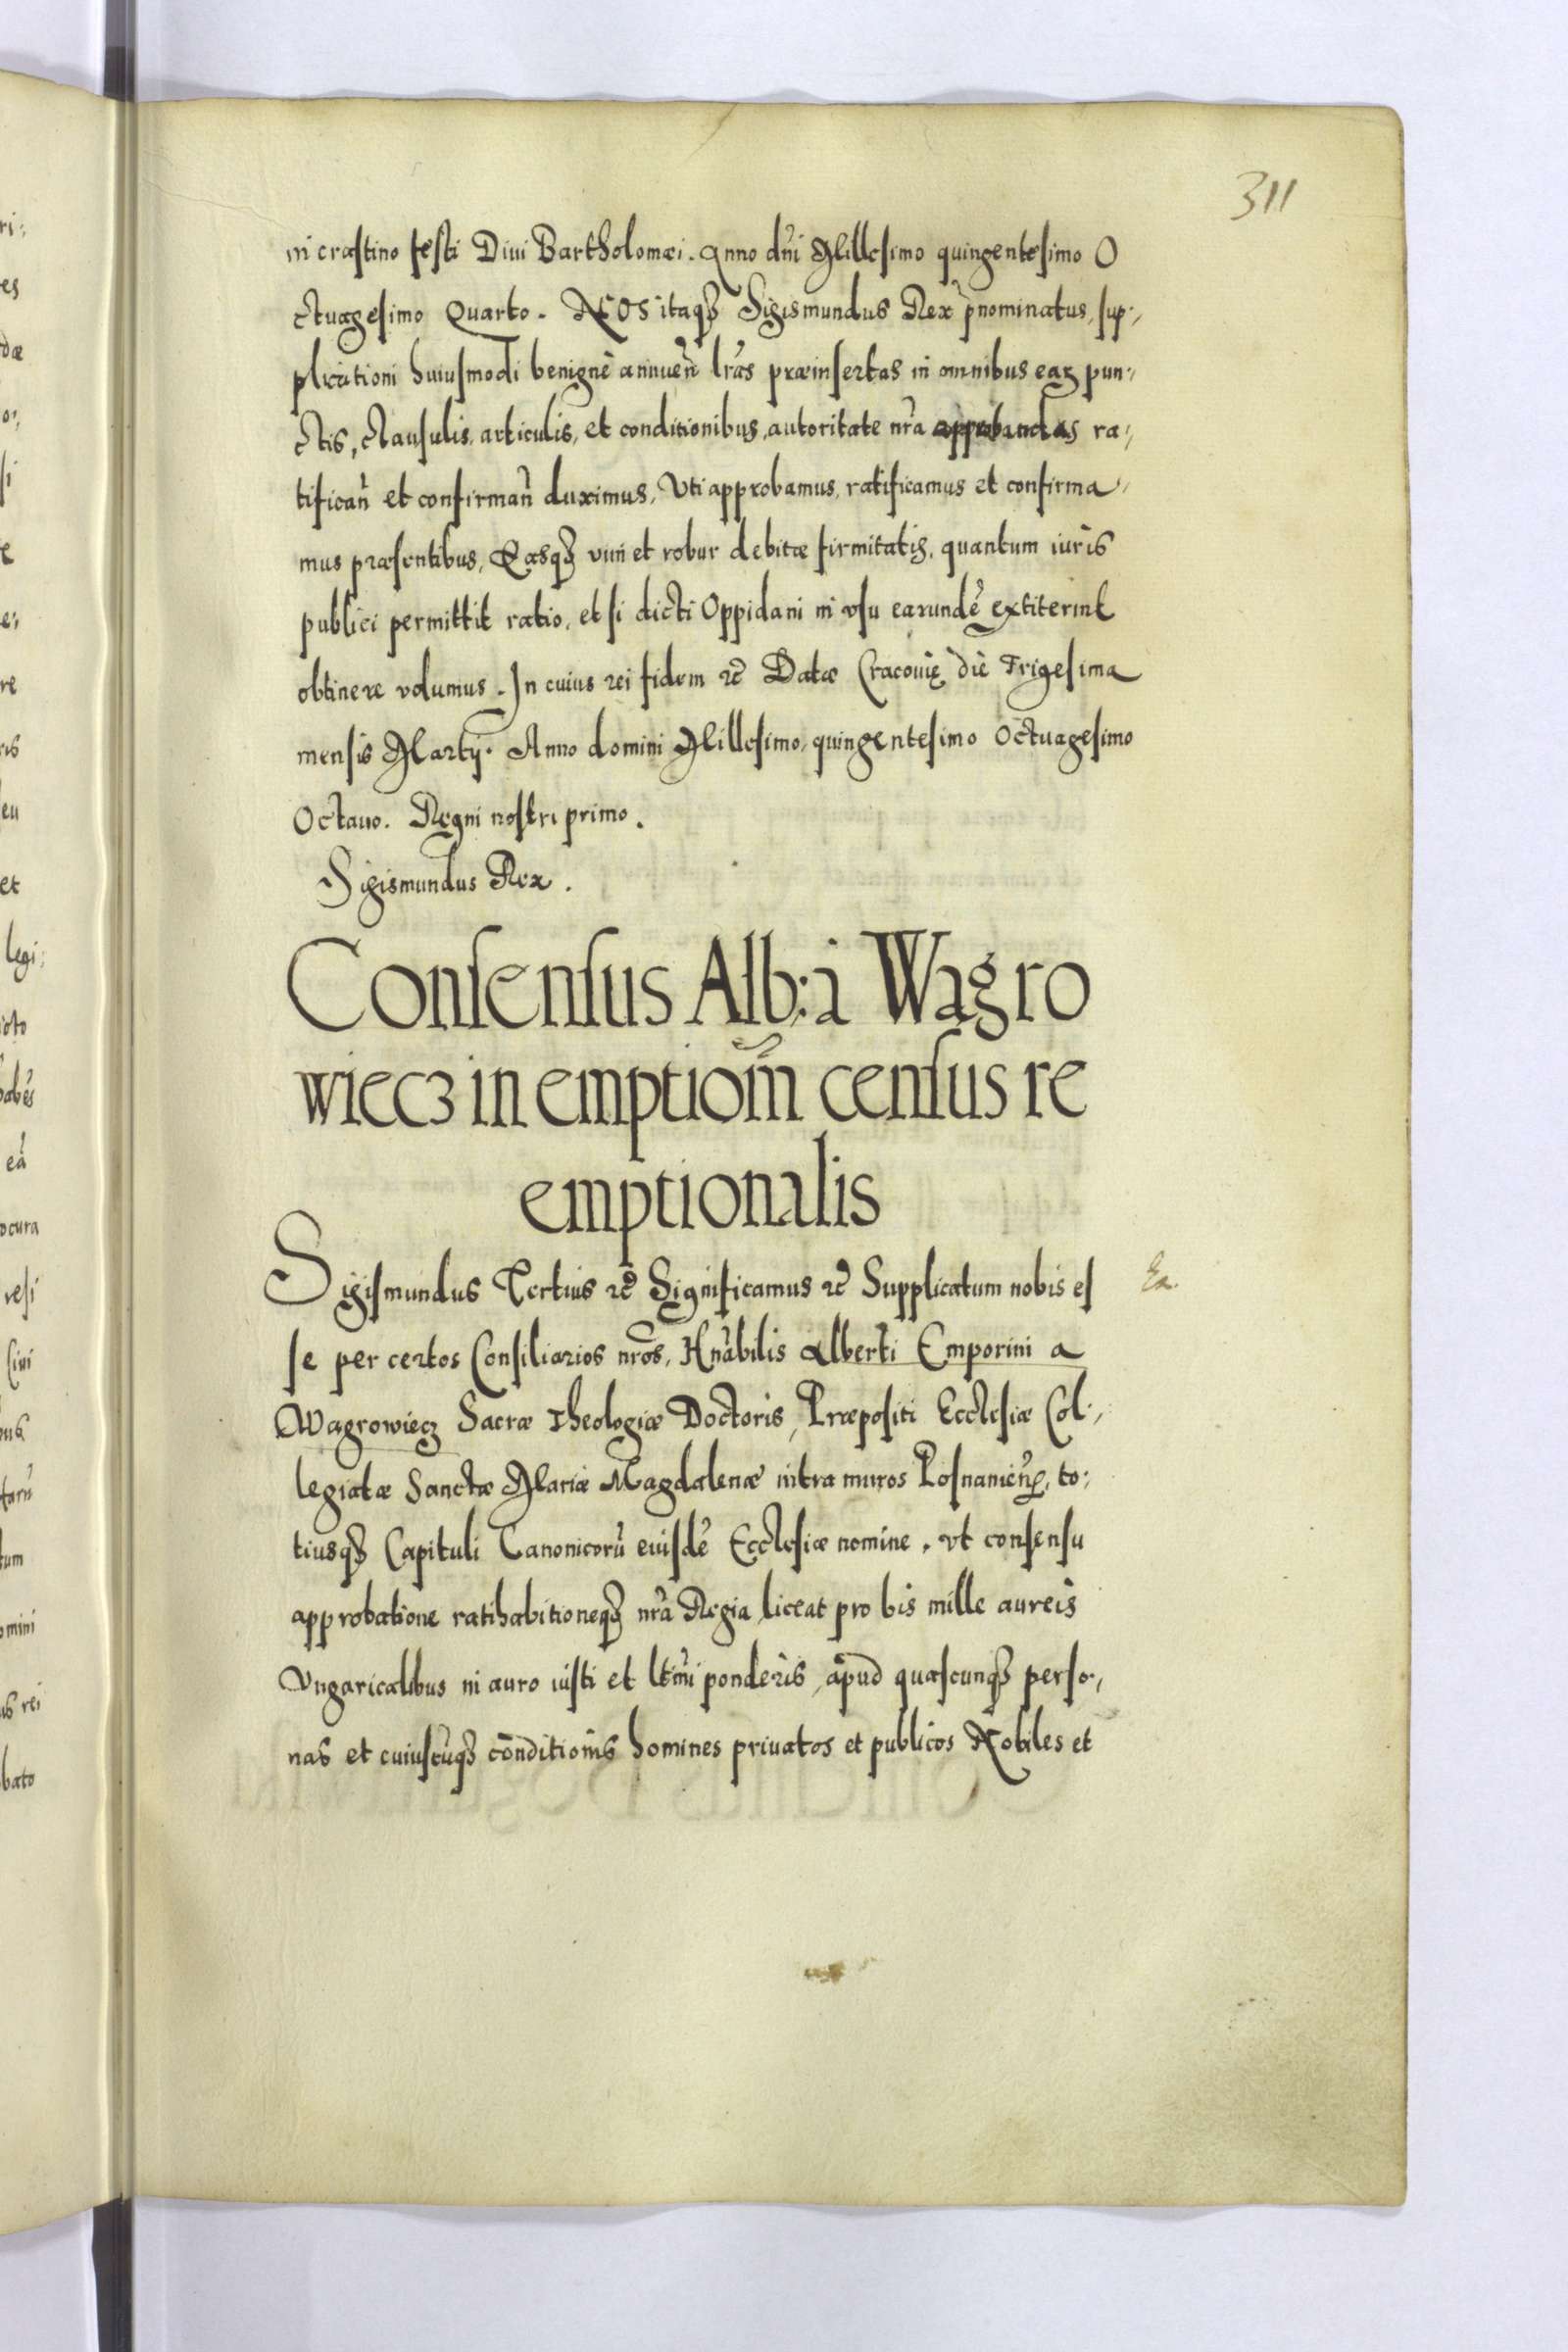 311
in crastino festi Diui Bartholomæi. Anno dñi Millesimo quingentesimo O
ctuagesimo Quarto. NOS itaqꝫ Sigismundus Rex p̃nominatus, sup:,
plicationi huiusmodi benignè annuen̄ lr̃as præinsertas in omnibus eaꝝ pun:,
ctis, clausulis, articulis, et conditionibus, autoritate nr̃a approbandas ra:,
tifican̄ et confirman̄ duximus, Vti approbamus, ratificamus et confirma:,
mus præsentibus, Easqꝫ vim et robur debitæ firmitatis, quantum iuris
publici permittit ratio, et si dicti Oppidani in vsu earundẽ extiterint
obtinere volumus. In cuius rei fidem ꝛc̃ Datæ Cracouię die Trigesima
mensis Martij. Anno domini Millesimo, quingentesimo Octuagesimo
Octauo. Regni nostri primo.
Sigismundus Rex.
Consensus Alb: à Wagro
wiecz in emptiom̃ census re
emptionalis
Sigismundus Tertius ꝛc̃ Significamus ꝛc̃ Supplicatum nobis es
se per certos Consiliarios nr̃os, Hnr̃abilis Alberti Emporini a
Wagrowiecz Sacræ Theologiæ Doctoris, Præpositi Ecclesiæ Col:,
legiatæ Sanctæ Mariæ Magdalenæ intra muros Posnanien̄, to:
tiusqꝫ Capituli Canonicorũ eiusdẽ Ecclesiæ nomine, vt consensu
approbatione ratihabitioneqꝫ nr̃a Regia liceat pro bis mille aureis
Vngaricalibus in auro iusti et ltĩmi ponderis, apud quascunqꝫ perso:,
nas et cuiuscũqꝫ conditionis homines priuatos et publicos Nobiles et